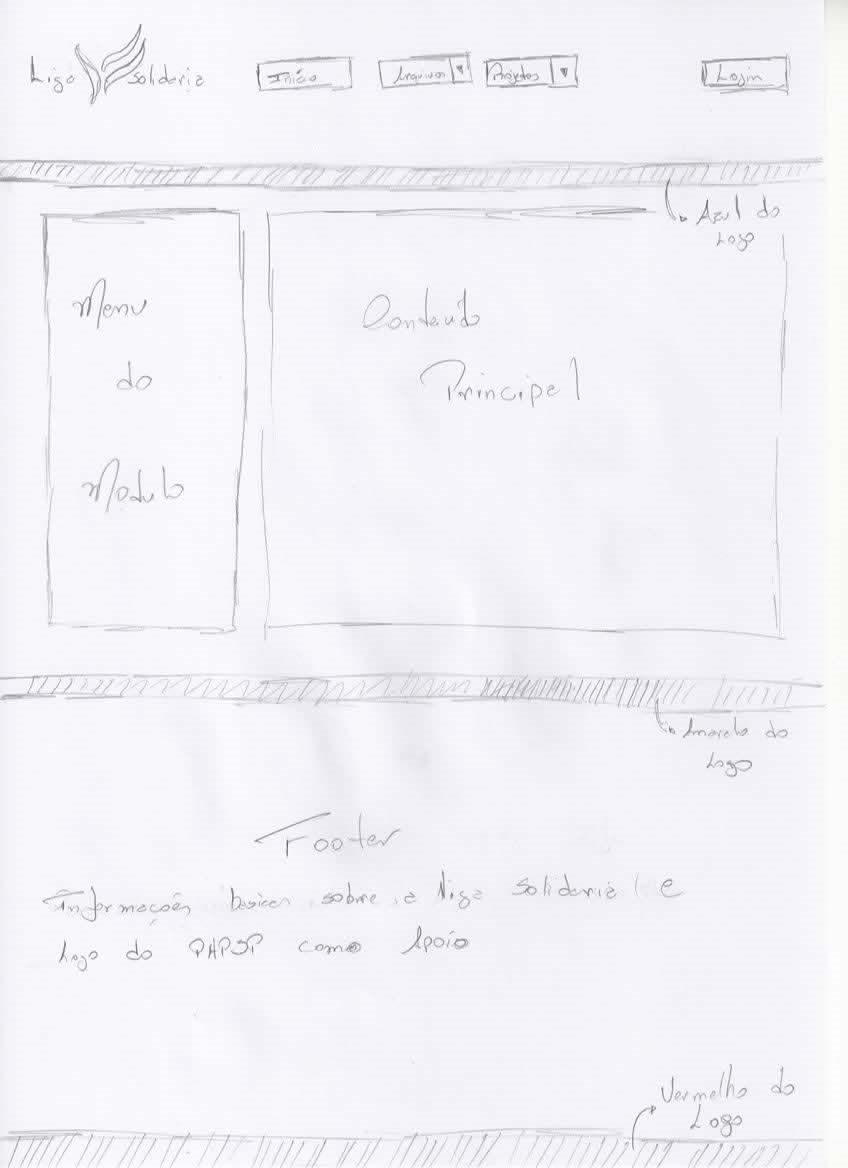 Liga Solidaria
Início
Arquivos
Projetos
Login
Azul do
Logo
Menu
do
Modulo
Conteúdo
Principal
Amarelo do
Logo
Footer
Informações basicas sobre a Liga Solidaria e
Logo do PAPSP como Apoio
Vermelho do
Logo